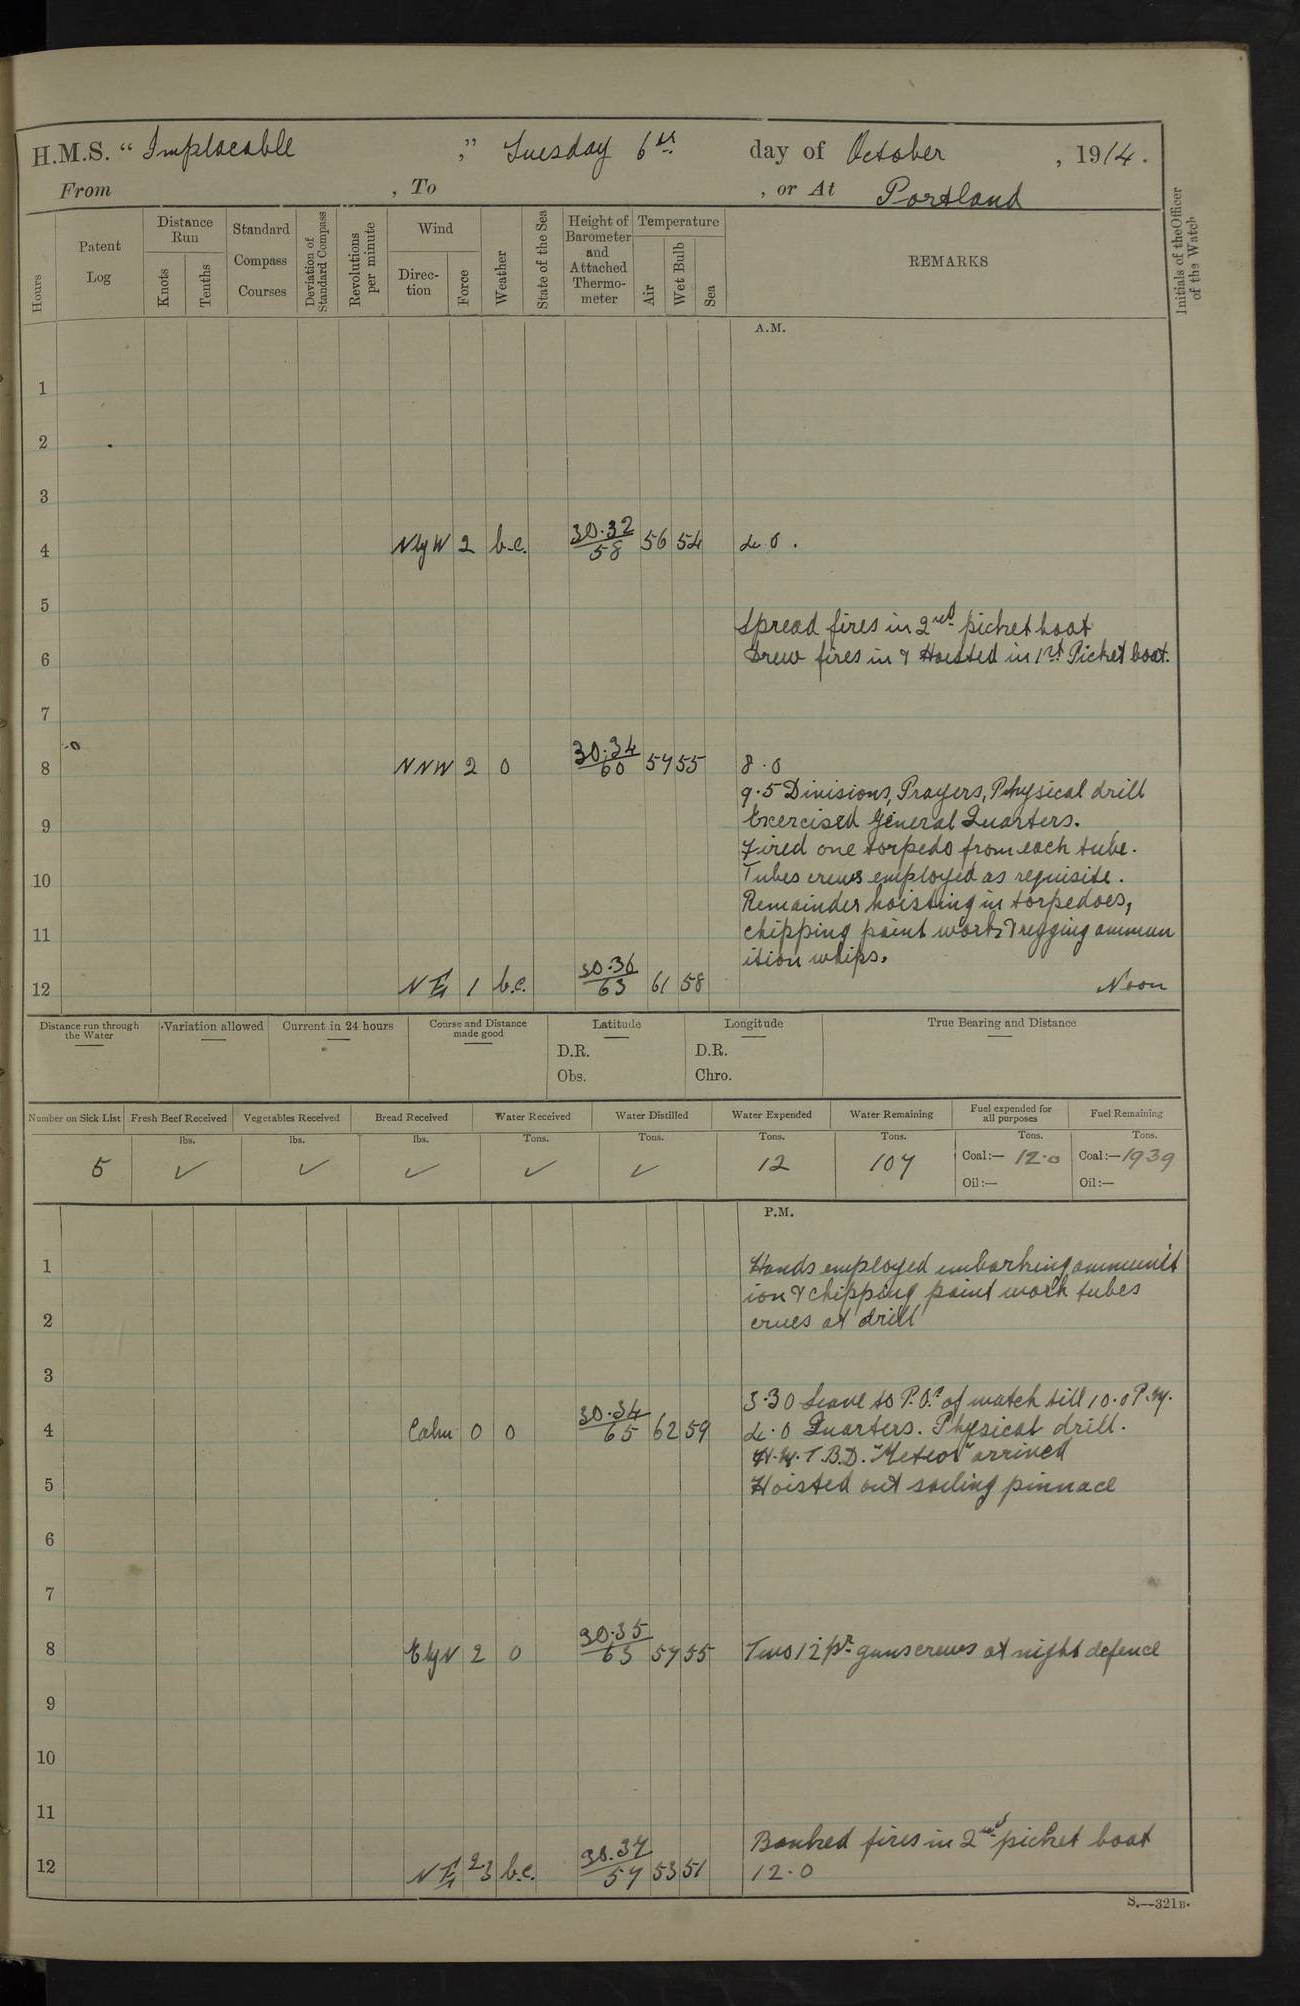 H.M.S. “ Implacable ,” Tuesday 6th. day of October , 1914.
From , To , or At Portland
Hours
Patent Log
Distance Run
Knots
Tenths
Standard Compass Courses
Deviation of Standard Compass
Revolutions per minute
Wind
Direc-tion
Force
Weather
State of the Sea
Height of Barometer and Attached Thermo-meter
Temperature
Air
Wet Bulb
Sea
REMARKS
Initials of the Officer of the Watch
A.M.
1
2
3
4 NbyW 2 b.c. 30.32/58 56 54 4.0.
5
Spread fires in 2nd. picket boat
6 Drew fires in & Hoisted in 1st. Picket boat.
7
8 NNW 2 0 30.34/60 57 55 8.0
9.5 Divisions, Prayers, Physical drill
9 Exercised General Quarters.
Fired one torpedo from each tube.
10 Tubes crews employed as requisite.
Remainder hoisting in torpedoes,
11 chipping paint work & rigging ammun
ition whips.
12 NE 1 b.c. 30.36/63 61 58 Noon
Distance run through the Water
Variation allowed
Current in 24 hours
Course and Distance made good
Latitude
D.R.
Obs.
Longitude
D.R.
Chro.
True Bearing and Distance
Number on Sick List
Fresh Beef Received
Vegetables Received
Bread Received
Water Received
Water Distilled
Water Expended
Water Remaining
Fuel expended for all purposes
Fuel Remaining
lbs. lbs. lbs. Tons. Tons. Tons. Tons. Tons. Tons.
5 ✓ ✓ ✓ ✓ ✓ 12 107 Coal:— 12.0 Coal:— 1939
Oil:— Oil:—
P.M.
1 Hands employed embarking ammunit
ion & chipping paint work tubes
2 crews at drill
3
3.30 Leave to P.O.s of watch till 10.0 P.M.
4 Calm 0 0 30.34/65 62 59 4.0 Quarters. Physical drill.
H.M.T.B.D. "Meteor" arrived
5 Hoisted out sailing pinnace
6
7
8 EbyN 2 0 30.35/63 57 55 Two 12 pr. guns crews at night defence
9
10
11
Banked fires in 2nd. picket boat
12 NE 2.3 b.c. 30.37/57 53 51 12.0
S.—321B.